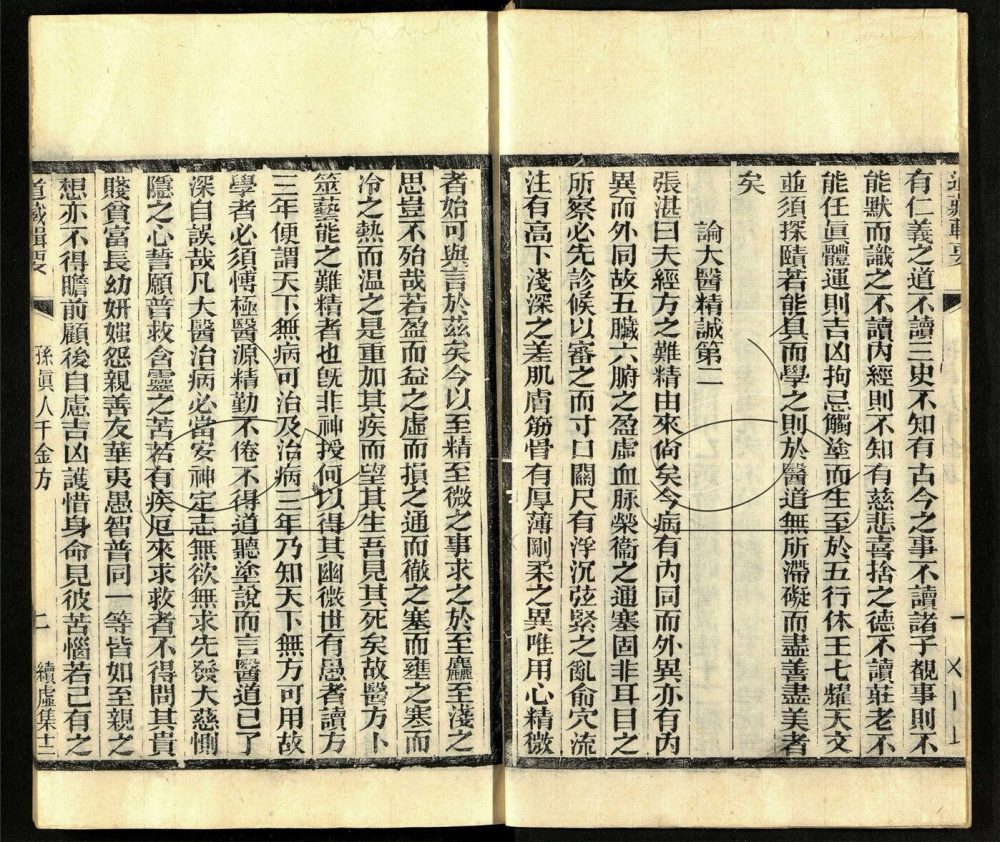 有仁義之道不讀三史不知有古今之事不讀諸子覩事則不
能默而識之不讀内經則不知有慈悲喜捨之德不讀莊老不
能任眞體運則吉凶拘忌觸塗而生至於五行休王七耀天文
並須探賾若能具而學之則於醫道無所滯礙而盡善盡美者
矣
論大醫精誠第二
張湛曰夫經方之難精由來尙矣今病有内同而外異亦有内
異而外同故五臟六腑之盈虛血脉榮衞之通塞固非耳目之
所察必先診候以審之而寸口關尺有浮沉弦緊之亂俞穴流
注有高下淺深之差肌膚筋骨有厚薄剛柔之異唯用心精微
者始可與言於兹矣今以至精至微之事求之於至麤至淺之
思豈不殆哉若盈而益之虛而損之通而徹之塞而壅之寒而
冷之熱而温之是重加其疾而望其生吾見其死矣故醫方卜
筮藝能之難精者也旣非神授何以得其幽微世有愚者讀方
三年便謂天下無病可治及治病三年乃知天下無方可用故
學者必須博極醫源精勤不倦不得道聽塗說而言醫道已了
深自誤哉凡大醫治病必當安神定志無欲無求先發大慈惻
隱之心誓願普救含靈之苦若有疾厄來求救者不得問其貴
賤貧富長幼妍媸怨親善友華夷愚智普同一等皆如至親之
想亦不得瞻前顧後自慮吉凶護惜身命見彼苦惱若己有之
道藏輯要 孫眞人千金方 二 續虛集十二